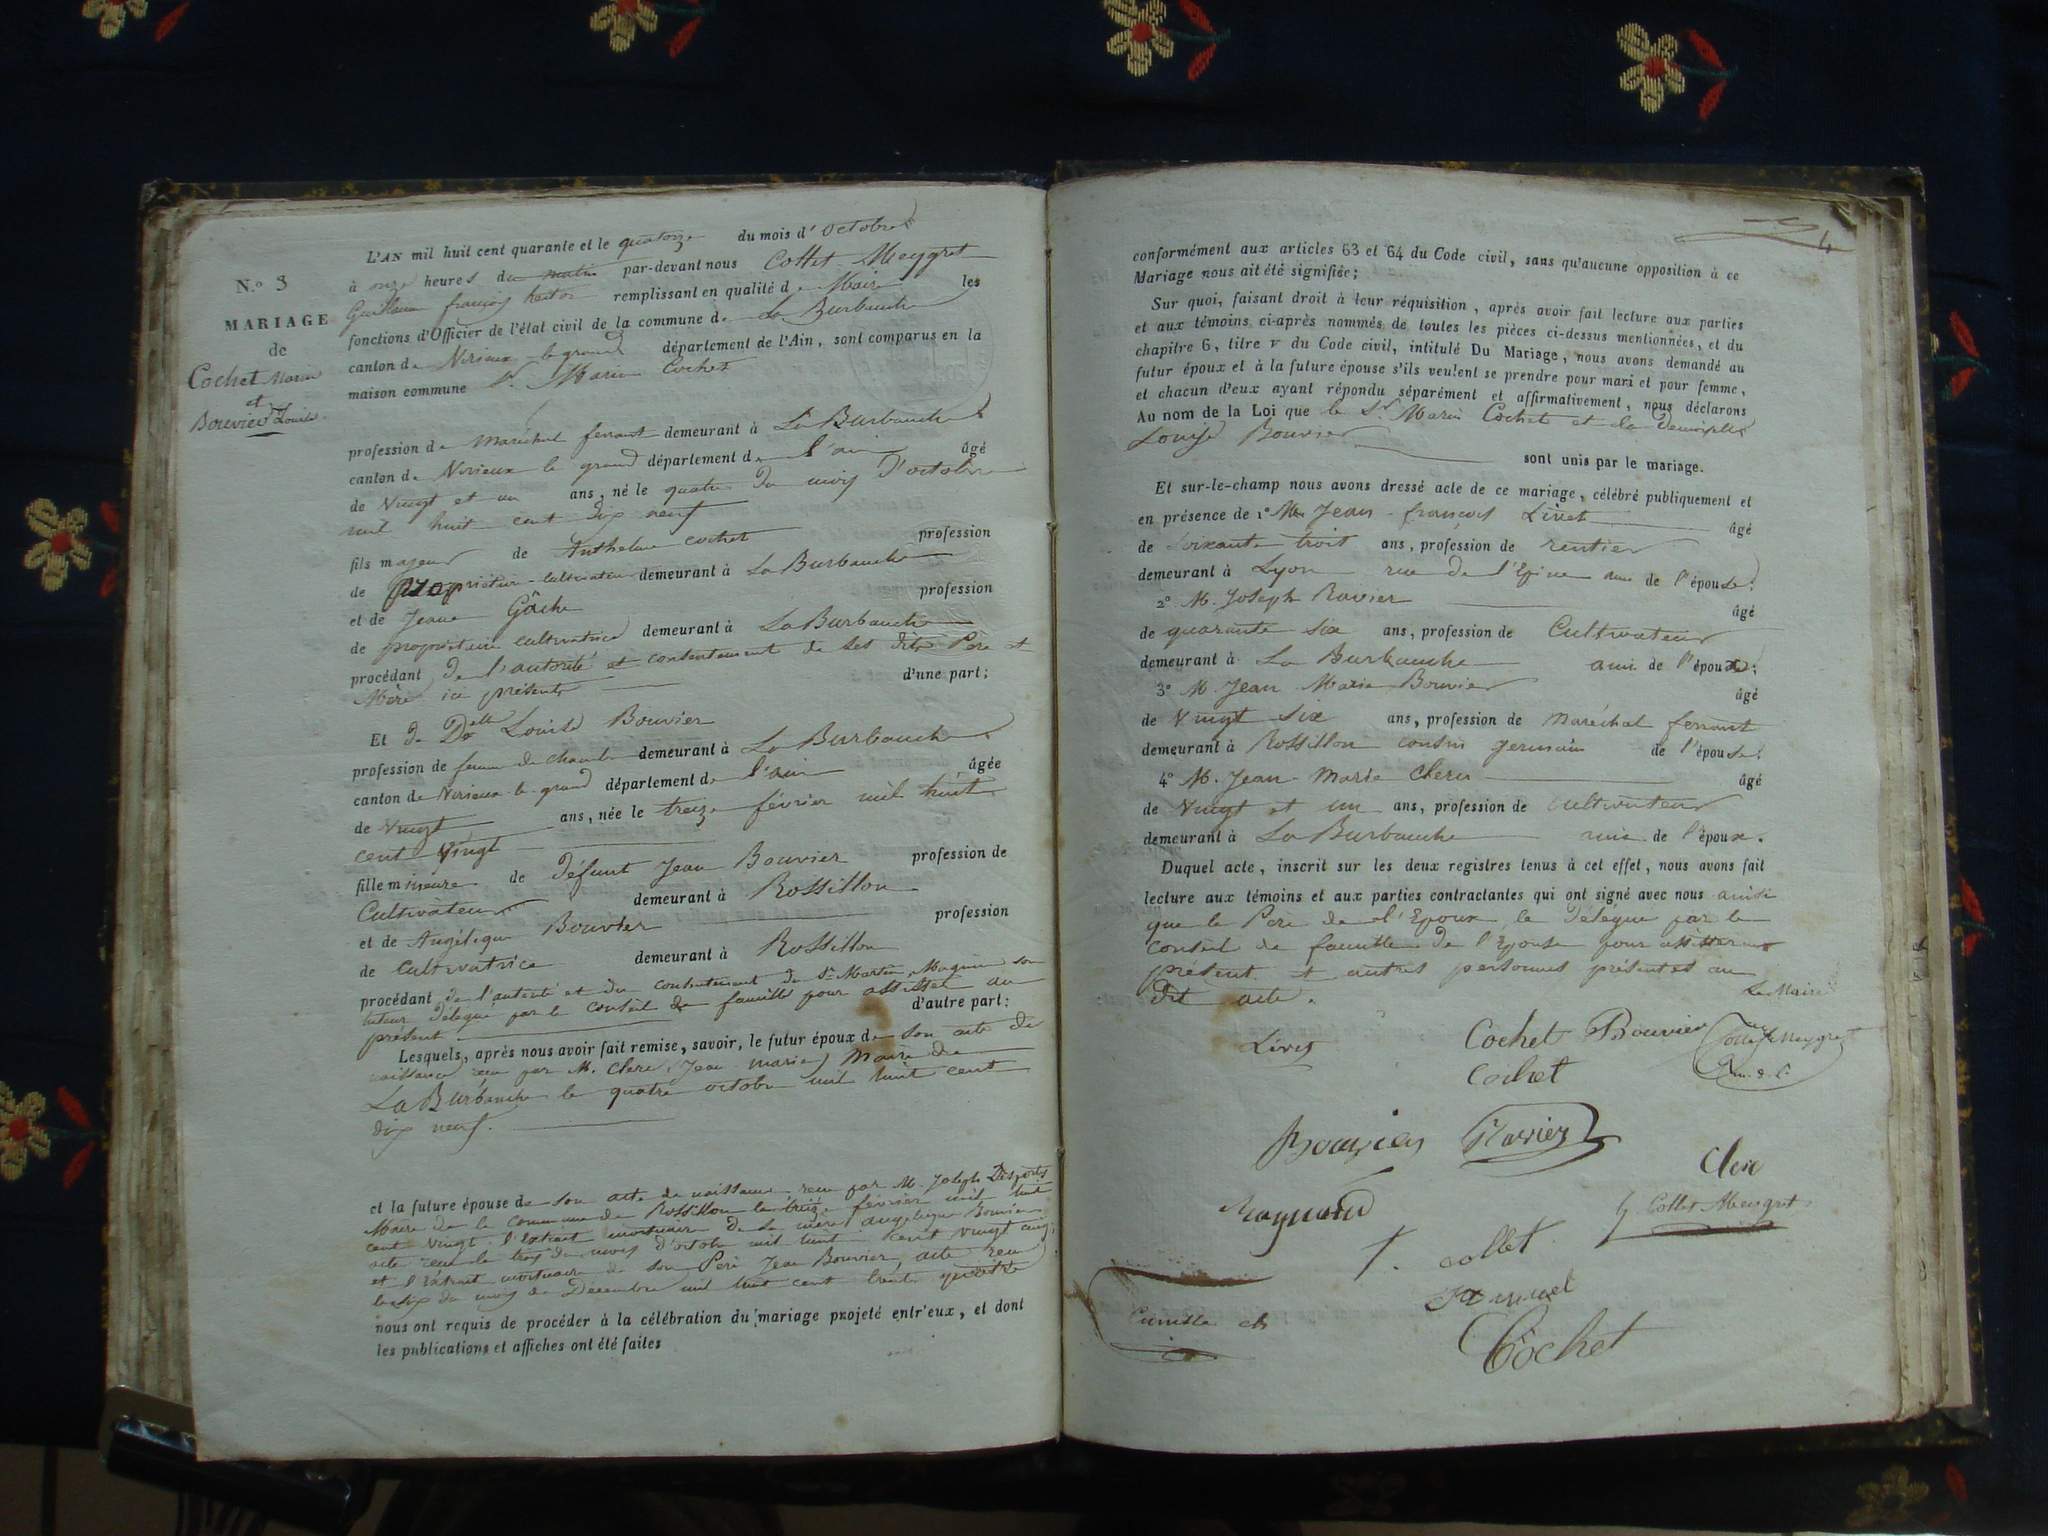 N.º 3
MARIAGE
de
Cochet Marin
et
Bouvier Louise
L'AN mil huit cent quarante et le quatorze du mois d'octobre
à onze heures du matin par-devant nous Cottet-Meygret
Guillaume françois hector remplissant en qualité de Maire les
fonctions d'Officier de l'état civil de la commune de La Burbanche
canton de Virieux-le-grand département de l'Ain, sont comparus en la
maison commune Sr Marin Cochet
profession de maréchal ferrant demeurant à La Burbanche
canton de Virieux le grand département de l'ain âgé
de Vingt et un ans, né le quatre du mois d'octobre
mil huit cent dix neuf
fils majeur de Anthelme Cochet profession
de propriétaire-cultivateur demeurant à La Burbanche
et de Jeane Gâche profession
de propriétaire cultivatrice demeurant à La Burbanche
procédant de l'autorité et consentement de ses dits Père et
Mère ici présents d'une part;
Et de Delle Louise Bouvier
profession de femme de chambre demeurant à La Burbanche
canton de Virieux-le-grand département de l'ain âgée
de Vingt ans, née le treize février mil huit
cent vingt
fille mineure de défunt Jean Bouvier profession de
Cultivateur demeurant à Rossillon
et de Angélique Bouvier profession
de Cultivatrice demeurant à Rossillon
procédant de l'autorité et du consentement de Sr Martin Magnin son
tuteur délégué par le conseil de famille pour assister au
présent d'autre part:
Lesquels, après nous avoir fait remise, savoir, le futur époux de son acte de
naissance reçu par M. Clerc Jean marie, Maire de
La Burbanche le quatre octobre mil huit cent
dix neuf.
et la future épouse de son acte de naissance reçu par M. Joseph Desportes
Maire de la commune de Rossillon le treize février mil huit
cent vingt, l'extrait mortuaire de sa mère angelique Bouvier
acte reçu le trois du mois d'octobre mil huit cent vingt cinq,
et l'extrait mortuaire de son Père Jean Bouvier, acte reçu
le six du mois de Décembre mil huit cent trente quatre
nous ont requis de procéder à la célébration du mariage projeté entr'eux, et dont
les publications et affiches ont été faites
4
conformément aux articles 63 et 64 du Code civil, sans qu'aucune opposition à ce
Mariage nous ait été signifiée;
Sur quoi, faisant droit à leur réquisition, après avoir fait lecture aux parties
et aux témoins ci-après nommés de toutes les pièces ci-dessus mentionnées, et du
chapitre 6, titre V du Code civil, intitulé Du Mariage, nous avons demandé au
futur époux et à la future épouse s'ils veulent se prendre pour mari et pour femme,
et chacun d'eux ayant répondu séparément et affirmativement, nous déclarons
Au nom de la Loi que le Sr Marin Cochet et la Demoiselle
Louise Bouvier
sont unis par le mariage.
Et sur-le-champ nous avons dressé acte de ce mariage, célébré publiquement et
en présence de 1º M. Jean-françois Livet âgé
de soixante trois ans, profession de rentier
demeurant à Lyon rue de l'Epine ami de l'épouse:
2º M. Joseph Ravier âgé
de quarante six ans, profession de Cultivateur
demeurant à La Burbanche ami de l'époux;
3º M. Jean Marie Bouvier âgé
de Vingt six ans, profession de maréchal ferrant
demeurant à Rossillon cousin germain de l'épouse:
4º M. Jean-Marie Clerc âgé
de Vingt et un ans, profession de cultivateur
demeurant à La Burbanche ami de l'époux.
Duquel acte, inscrit sur les deux registres tenus à cet effet, nous avons fait
lecture aux témoins et aux parties contractantes qui ont signé avec nous ainsi
que le Père de l'Epoux, le délégué par le
conseil de famille de l'épouse pour assister au
présent et autres personnes présentes au
dit acte.
Le Maire
Livet Cochet Bouvier Cottet Meygret
Cochet
Bouvier Ravier
Clerc
Cottet Meygret
f. collet
Cochet